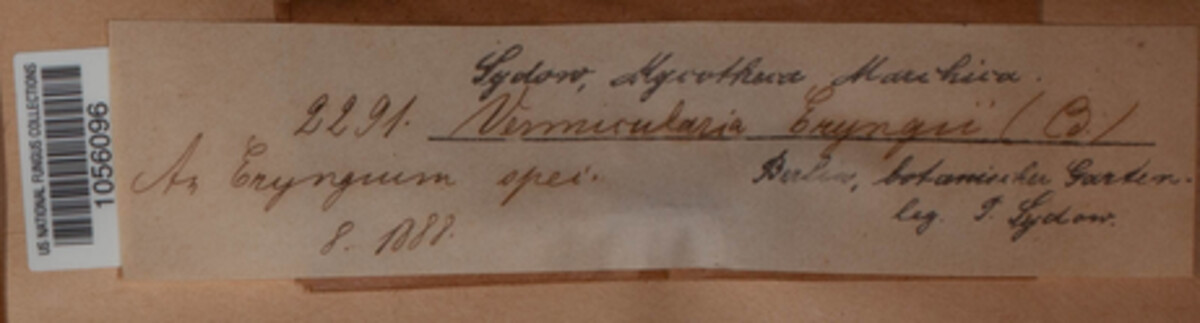 US NATIONAL FUNGUS COLLECTIONS
1056096
Sydow, Mycotheca Marchica.
2291. Vermicularia Eryngii (Cd.)
An Eryngium spei.
Berlin, botanischer Garten.
leg. P. Sydow.
8. 1888.